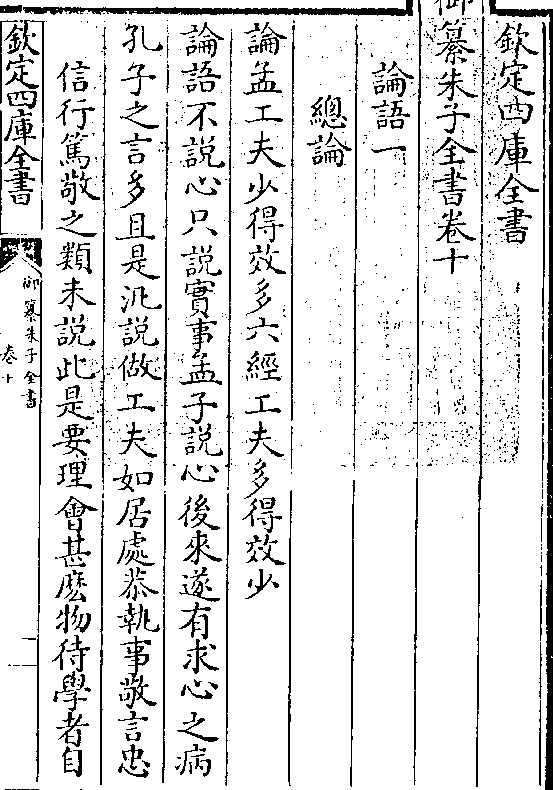 欽定四庫全書
御纂朱子全書卷十
論語一
總論
論孟工夫少得效多六經工夫多得效少
論語不說心只說實事孟子說心後來遂有求心之病
孔子之言多且是汎說做工夫如居處恭執事敬言忠
信行篤敬之類未說此是要理會甚麽物待學者自
欽定四庫全書
御纂朱子全書
卷十
一